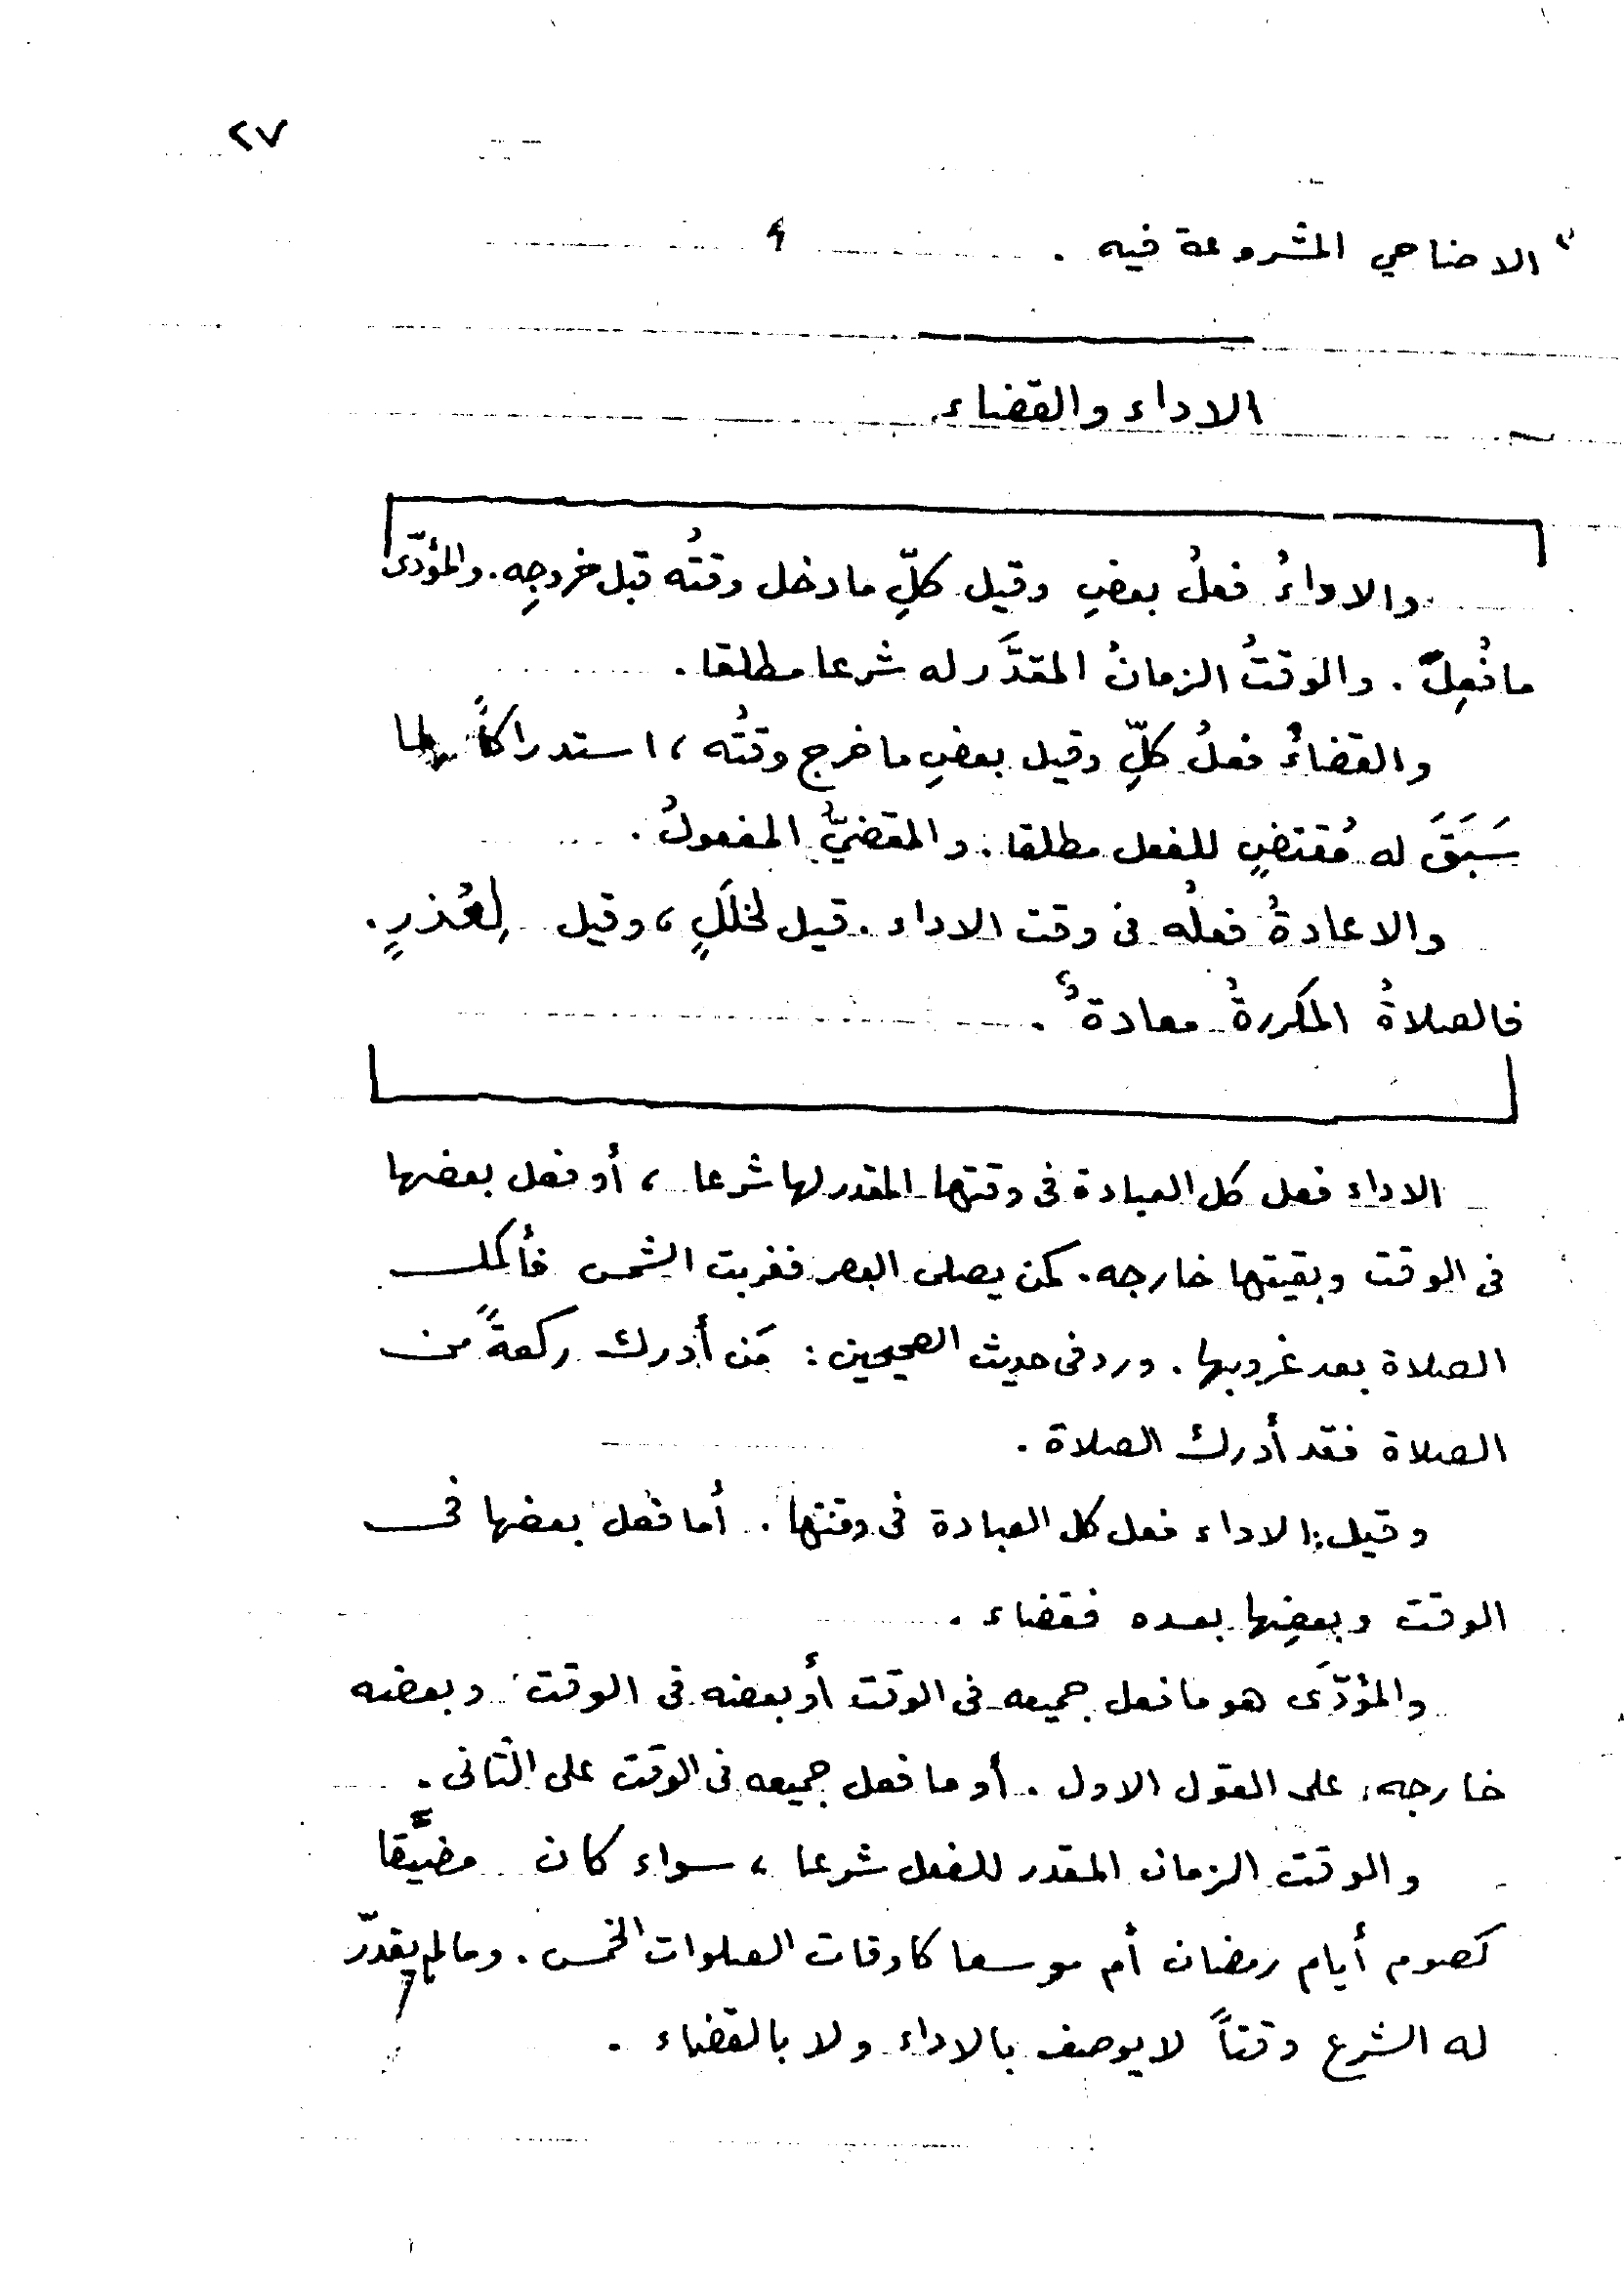 ٢٧
الاضاحي المشروعة فيه .
الاداء والقضاء
والاداءُ فعلُ بعضِ وقيل كلِّ ما دخل وقتُه قبل خروجِه. والمؤدّى
ما فُعِلَ . والوقتُ الزمانُ المقدَّر له شرعا مطلقا .
والقضاءُ فعلُ كلِّ وقيل بعضِ ما خرج وقتُه ، استدراكاً لما
سَبَقَ له مُقتضٍ للفعل مطلقا . والمقضيُّ المفعولُ .
والاعادةُ فعلُه فى وقت الاداء . قيل لخلَلٍ ، وقيل لِعُذرٍ .
فالصلاةُ المكررةُ معادةٌ .
الاداء فعل كل العبادة فى وقتها المقدر لها شرعا ، أو فعل بعضها
فى الوقت وبقيتها خارجه . كمن يصلى العصر فغربت الشمس فأكمل
الصلاة بعد غروبها . ورد فى حديث الصحيحين : مَن أدرك ركعةً من
الصلاة فقد أدرك الصلاة .
وقيل : الاداء فعل كل العبادة فى وقتها . أما فعل بعضها فى
الوقت وبعضِها بعده فقضاء .
والمؤدَّى هو ما فعل جميعه فى الوقت أو بعضه فى الوقت وبعضه
خارجه، على القول الاول . أو ما فعل جميعه فى الوقت على الثانى .
والوقت الزمان المقدر للفعل شرعا ، سواء كان مضيَّقا
كصوم أيام رمضان أم موسعا كاوقات الصلوات الخمس . وما لم يقدّر
له الشرع وقتاً لا يوصف بالاداء ولا بالقضاء .